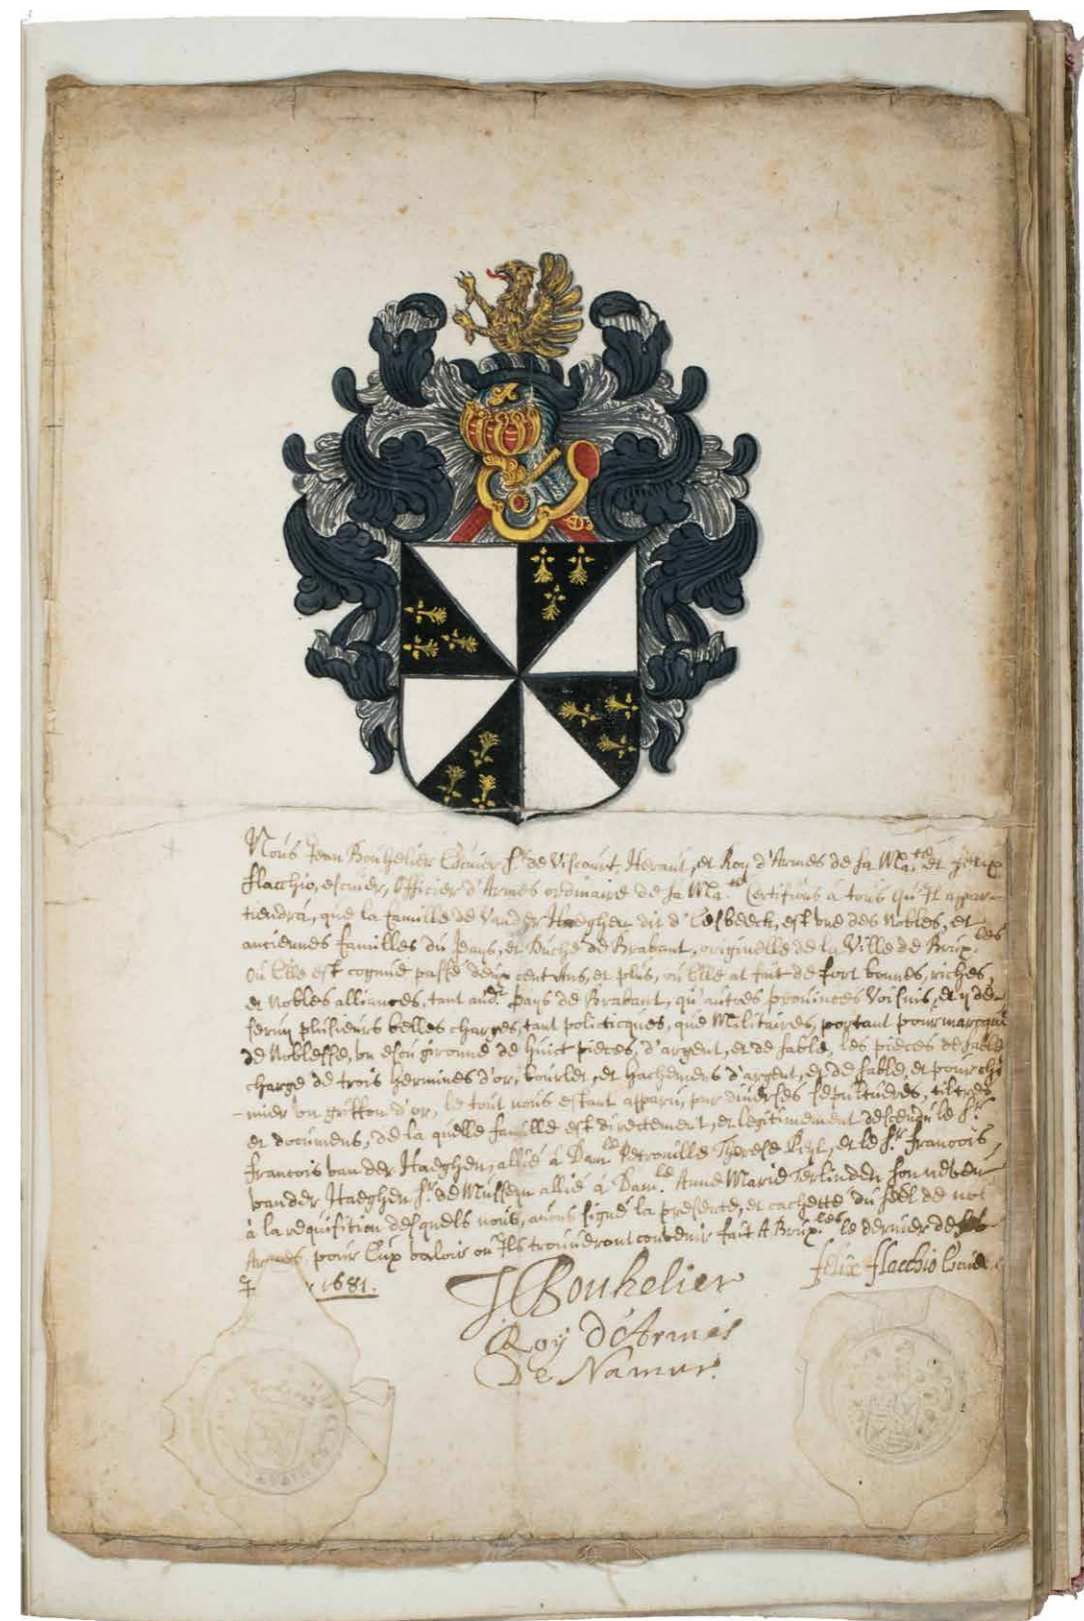 Nous Jean Bouhelier Escuier Sr de Viscourt, Heraut, et Roy d'Armes de sa Ma.té et
flacchio, escuier, officier d'Armes ordinaire de sa Ma.té Certifions a tous qu'Il appar-
tiendra, que la famille de Vander Haeghen dit d' est une des Nobles, et
anciennes familles du Pays, et Duché de Brabant, originelle de la Ville de Brux.les
ou Elle est cognue passé deux cent Ans, et plus, ou Elle at fait de fort bonnes, riches,
et Nobles alliances, tant aud.t Pays de Brabant, qu'autres provinces Voisins, et y
servy plusieurs belles charges, tant politicques, que Militaires, portant pour marcque
de Noblesse, un escu gironné de huict pieces, d'argent, et de sable, les pieces de sable
chargé de trois hermines d'or, bourlet, et hachemens d'argent, et de sable, et pour chi
-mier un griffon d'or, le tout nous estant apparu, par diverses sepultures, tiltres
et documens, de la quelle famille est directement, et legitimement descendu le Sr
francois van der Haeghen, allié à Dam.le Petronille Therese et le Sr francois
vander Haeghen Sr de Mussem allié à Dam.le Anne Marie Terlinden son neveu
à la requisition desquels nous, avons signé la presente, et cachetté du séel de not
Armes, pour Eux valoir ou Ils trouveront convenir fait A Brux.les le dernier de
1681.
J Bouhelier
Roy d'Armes
De Namur.
felix flacchio